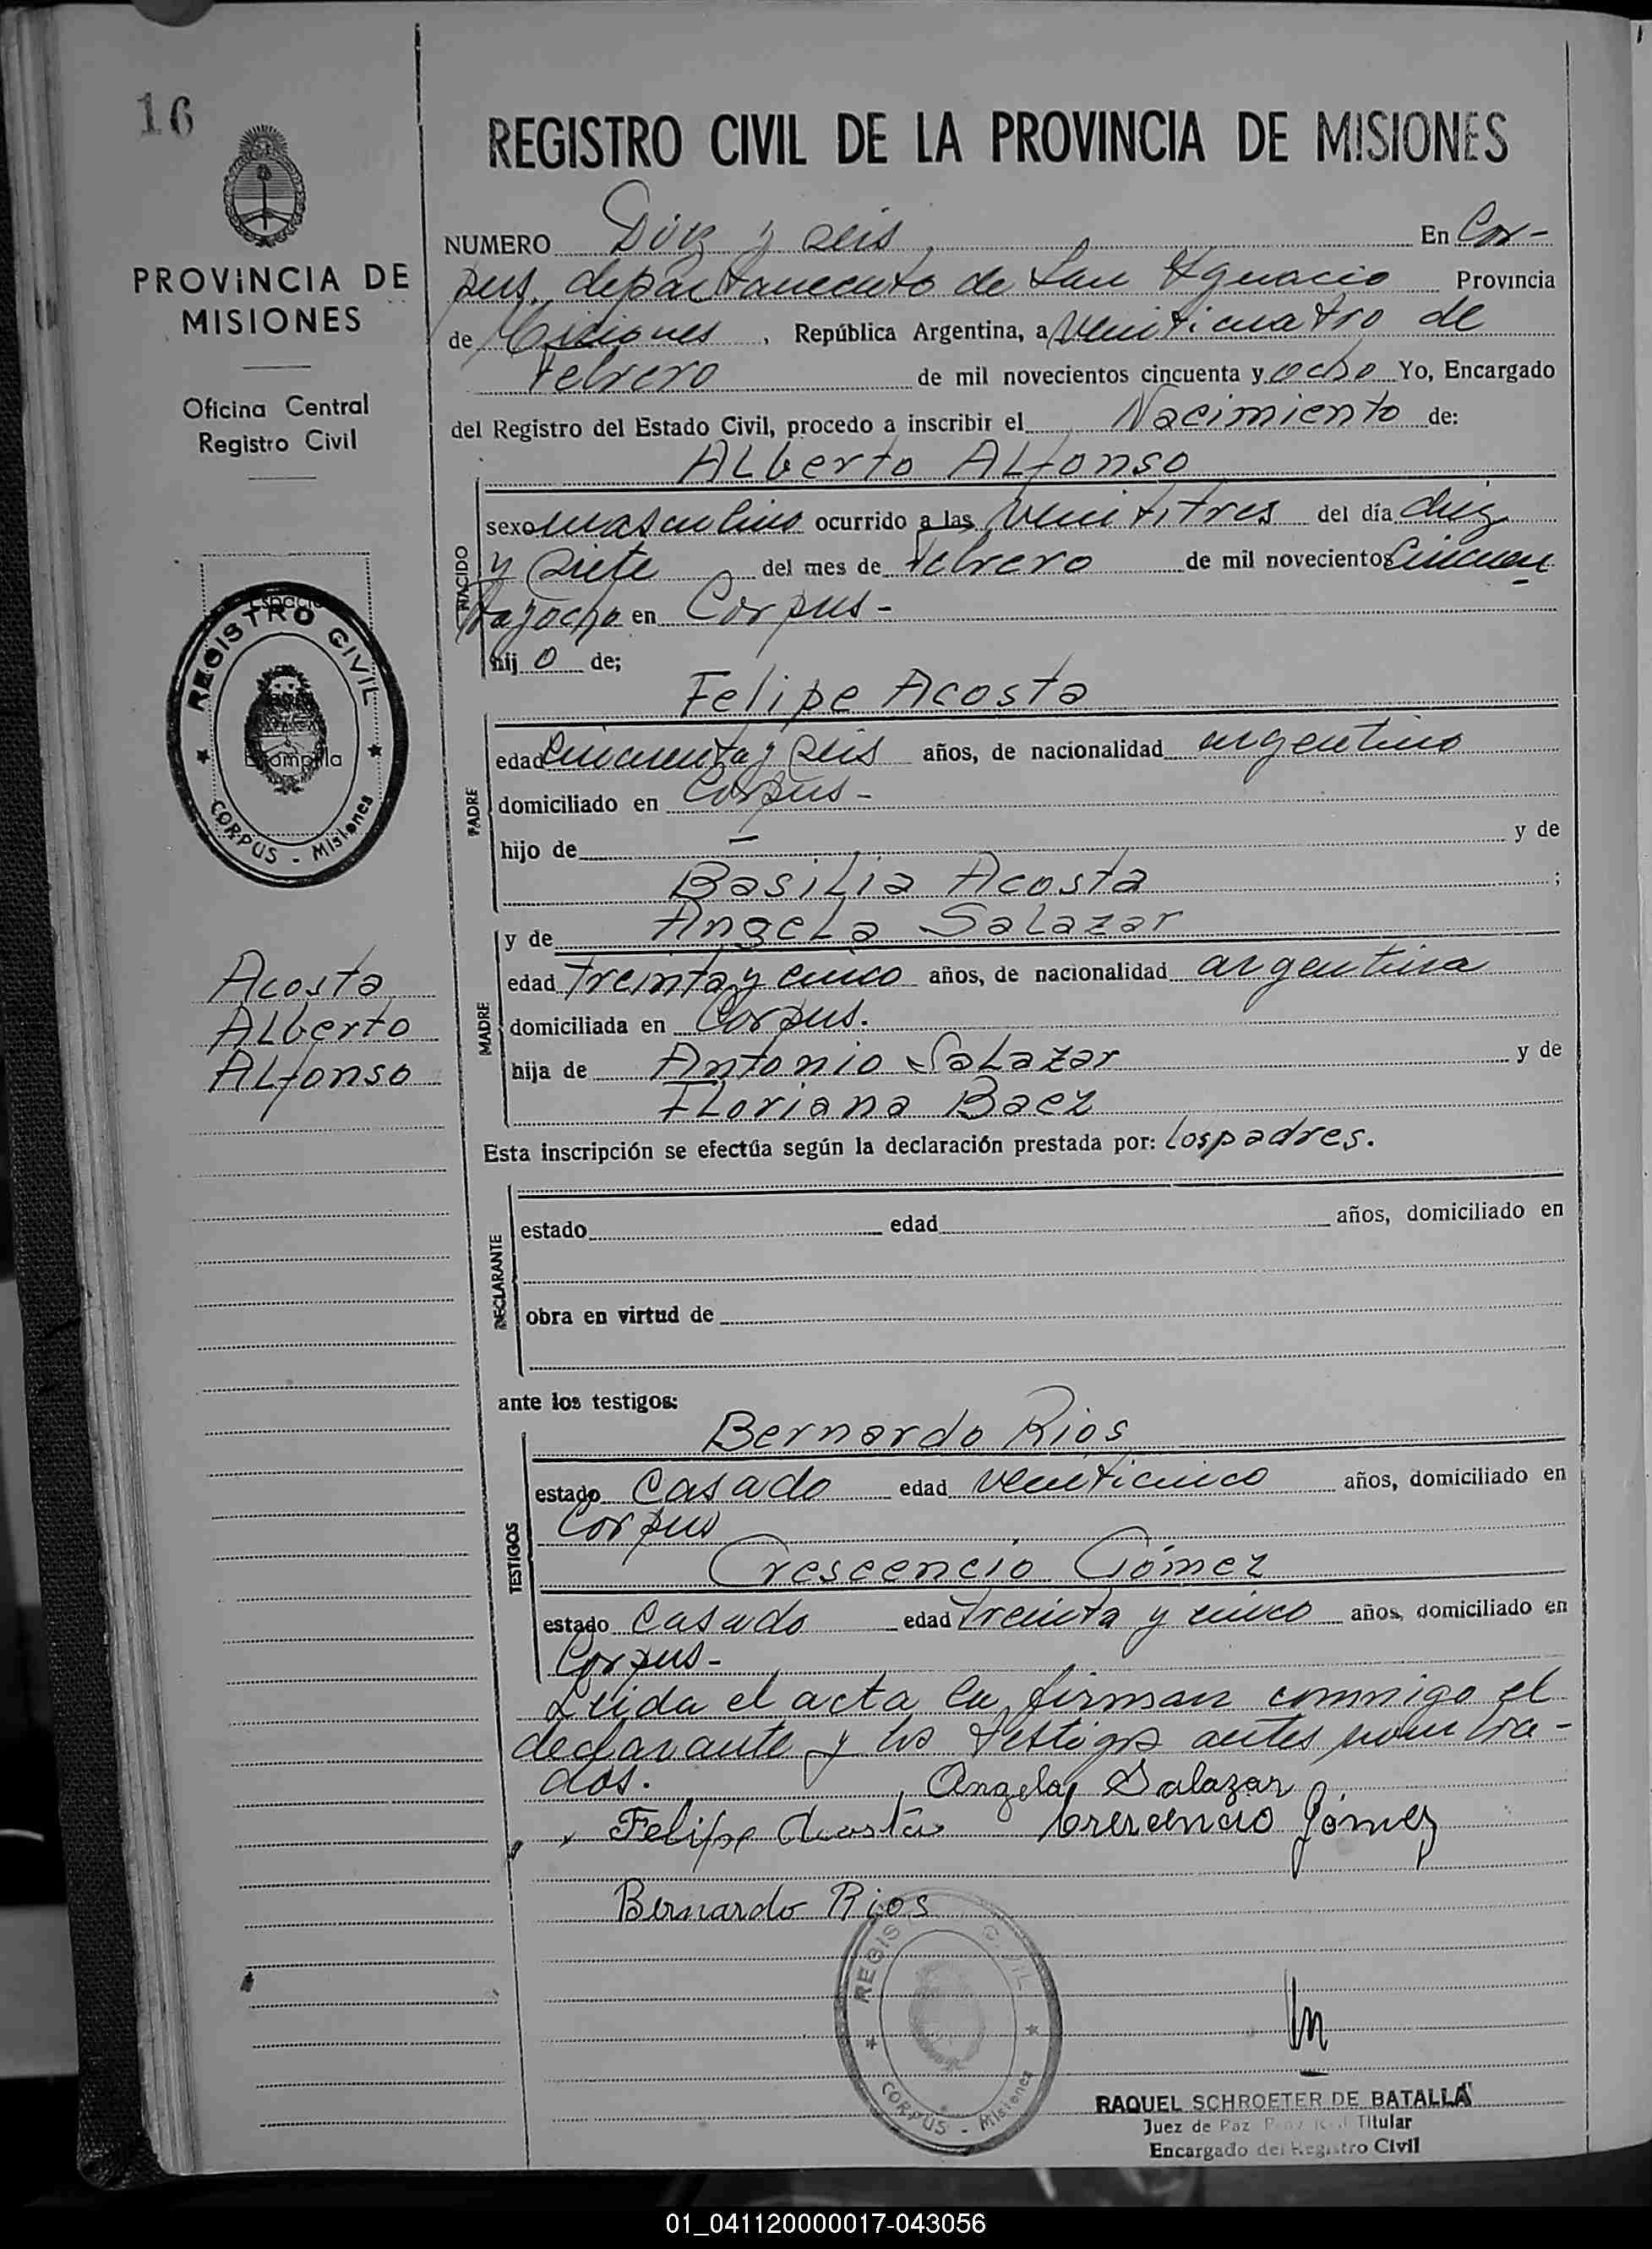 16
REGISTRO CIVIL DE LA PROVINCIA DE MISIONES
PROVINCIA DE
MISIONES
Oficina Central
Registro Civil
NUMERO Diez y seis En Cor-
pus, departamento de San Ignacio Provincia
de Misiones, República Argentina, a veinticuatro de
Febrero de mil novecientos cincuenta y ocho Yo, Encargado
del Registro del Estado Civil, procedo a inscribir el Nacimiento de:
Alberto Alfonso
NACIDO
sexo masculino ocurrido a las veintitres del día diez
y siete del mes de Febrero de mil novecientos cincuen
ta y ocho en Corpus-
hij o de;
Espacio
Estampilla
REGISTRO CIVIL
CORPUS - Misiones
Felipe Acosta
PADRE
edad cincuenta y seis años, de nacionalidad argentino
domiciliado en Corpus-
hijo de - y de
Basilia Acosta ;
y de Angela Salazar
MADRE
edad treinta y cinco años, de nacionalidad argentina
domiciliada en Corpus.
hija de Antonio Salazar y de
Floriana Baez
Acosta
Alberto
Alfonso
Esta inscripción se efectúa según la declaración prestada por: los padres.
DECLARANTE
estado edad años, domiciliado en
obra en virtud de
ante los testigos:
Bernardo Rios
TESTIGOS
estado Casado edad veinticinco años, domiciliado en
Corpus
Crescencio Gómez
estado Casado edad treinta y cinco años, domiciliado en
Corpus-
Leida el acta la firman conmigo el
declarante y los testigos antes nombra-
dos. Angela Salazar
Felipe Acosta Crescencio Gómez
Bernardo Rios
REGIS CIVIL
CORPUS - Misiones
RAQUEL SCHROETER DE BATALLA
Juez de Paz Titular
Encargado del Registro Civil
01_041120000017-043056